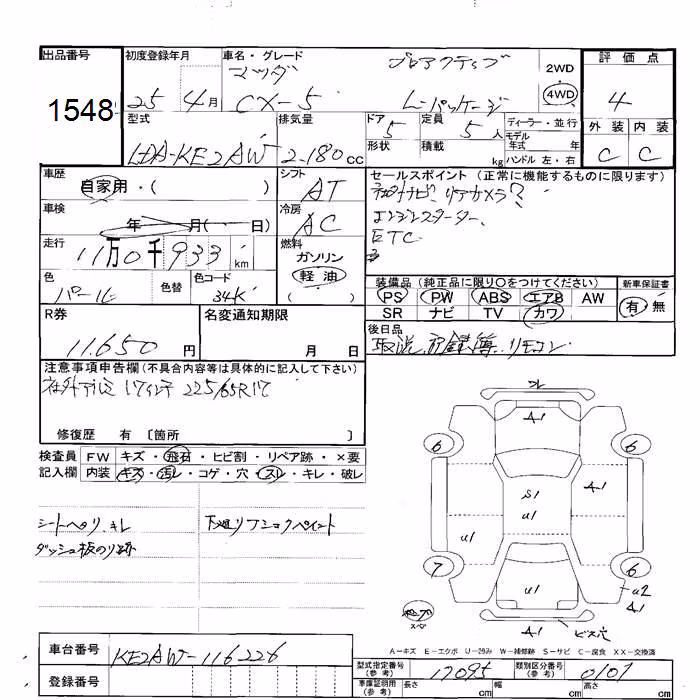 出品番号 初度登録年月 車名・グレード 評価点
1548 25 4月 マツダ プロアクティブ 2WD
CX-5 L-パッケージ 4WD 4
型式 排気量 ドア 定員 ディーラー・並行 外装 内装
5 5人 モデル年式 年
LDA-KE2AW 2.180cc 形状 積載 kg ハンドル 左・右 C C
車歴 シフト セールスポイント (正常に機能するものに限ります)
自家用・( ) AT 社外ナビ リアカメラ
車検 冷房 エンジンスターター
年 月( 日) AC ETC
走行 燃料
11万0千933km ガソリン
色 色替 色コード 軽油 装備品 (純正品に限り〇をつけてください) 新車保証書
パール 34K ( ) PS PW ABS エアB AW 有 無
SR ナビ TV カワ
R券 名変通知期限 後日品
11.650円 月 日 取説 記録簿 リモコン
注意事項申告欄 (不具合内容等は具体的に記入して下さい)
社外アルミ 17インチ 225/65R17
修復歴 有 〔箇所 〕
検査員 FW キズ・飛石・ヒビ割・リペア跡・×要
記入欄 内装 キズ・汚レ・コゲ・穴・スレ・キレ・破レ
シートヘリ.キレ 下廻リ
ダッシュ板のり跡
A1
6 6
A1
S1
U1
U1
7 6
U1 U2
A1
A1 ビス穴
スペア
A-キズ E-エクボ U-凹み W-補修跡 S-サビ C-腐食 XX-交換済
車台番号 KE2AW-116226
型式指定番号(参考) 17095 類別区分番号(参考) 0107
登録番号 車庫証明用(参考) 長さ cm 幅 cm 高さ cm